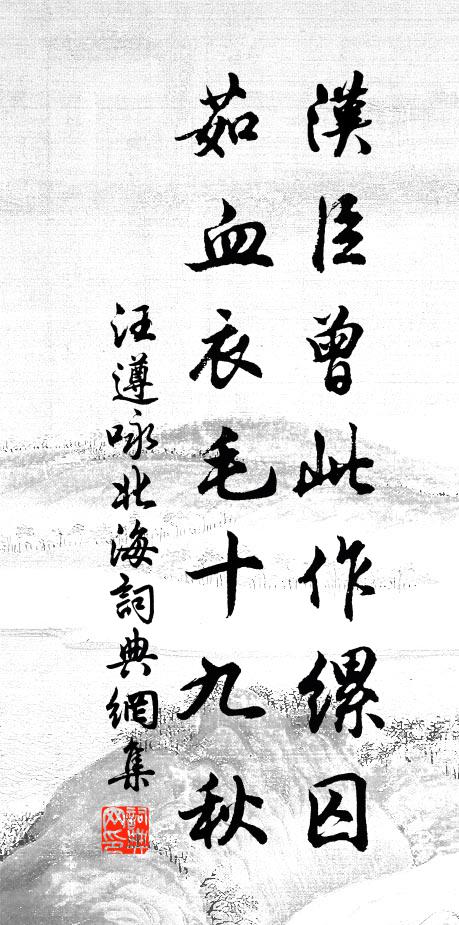 漢臣曾此作縲囚
茹血衣毛十九秋
汪遵咏北海詞典網集